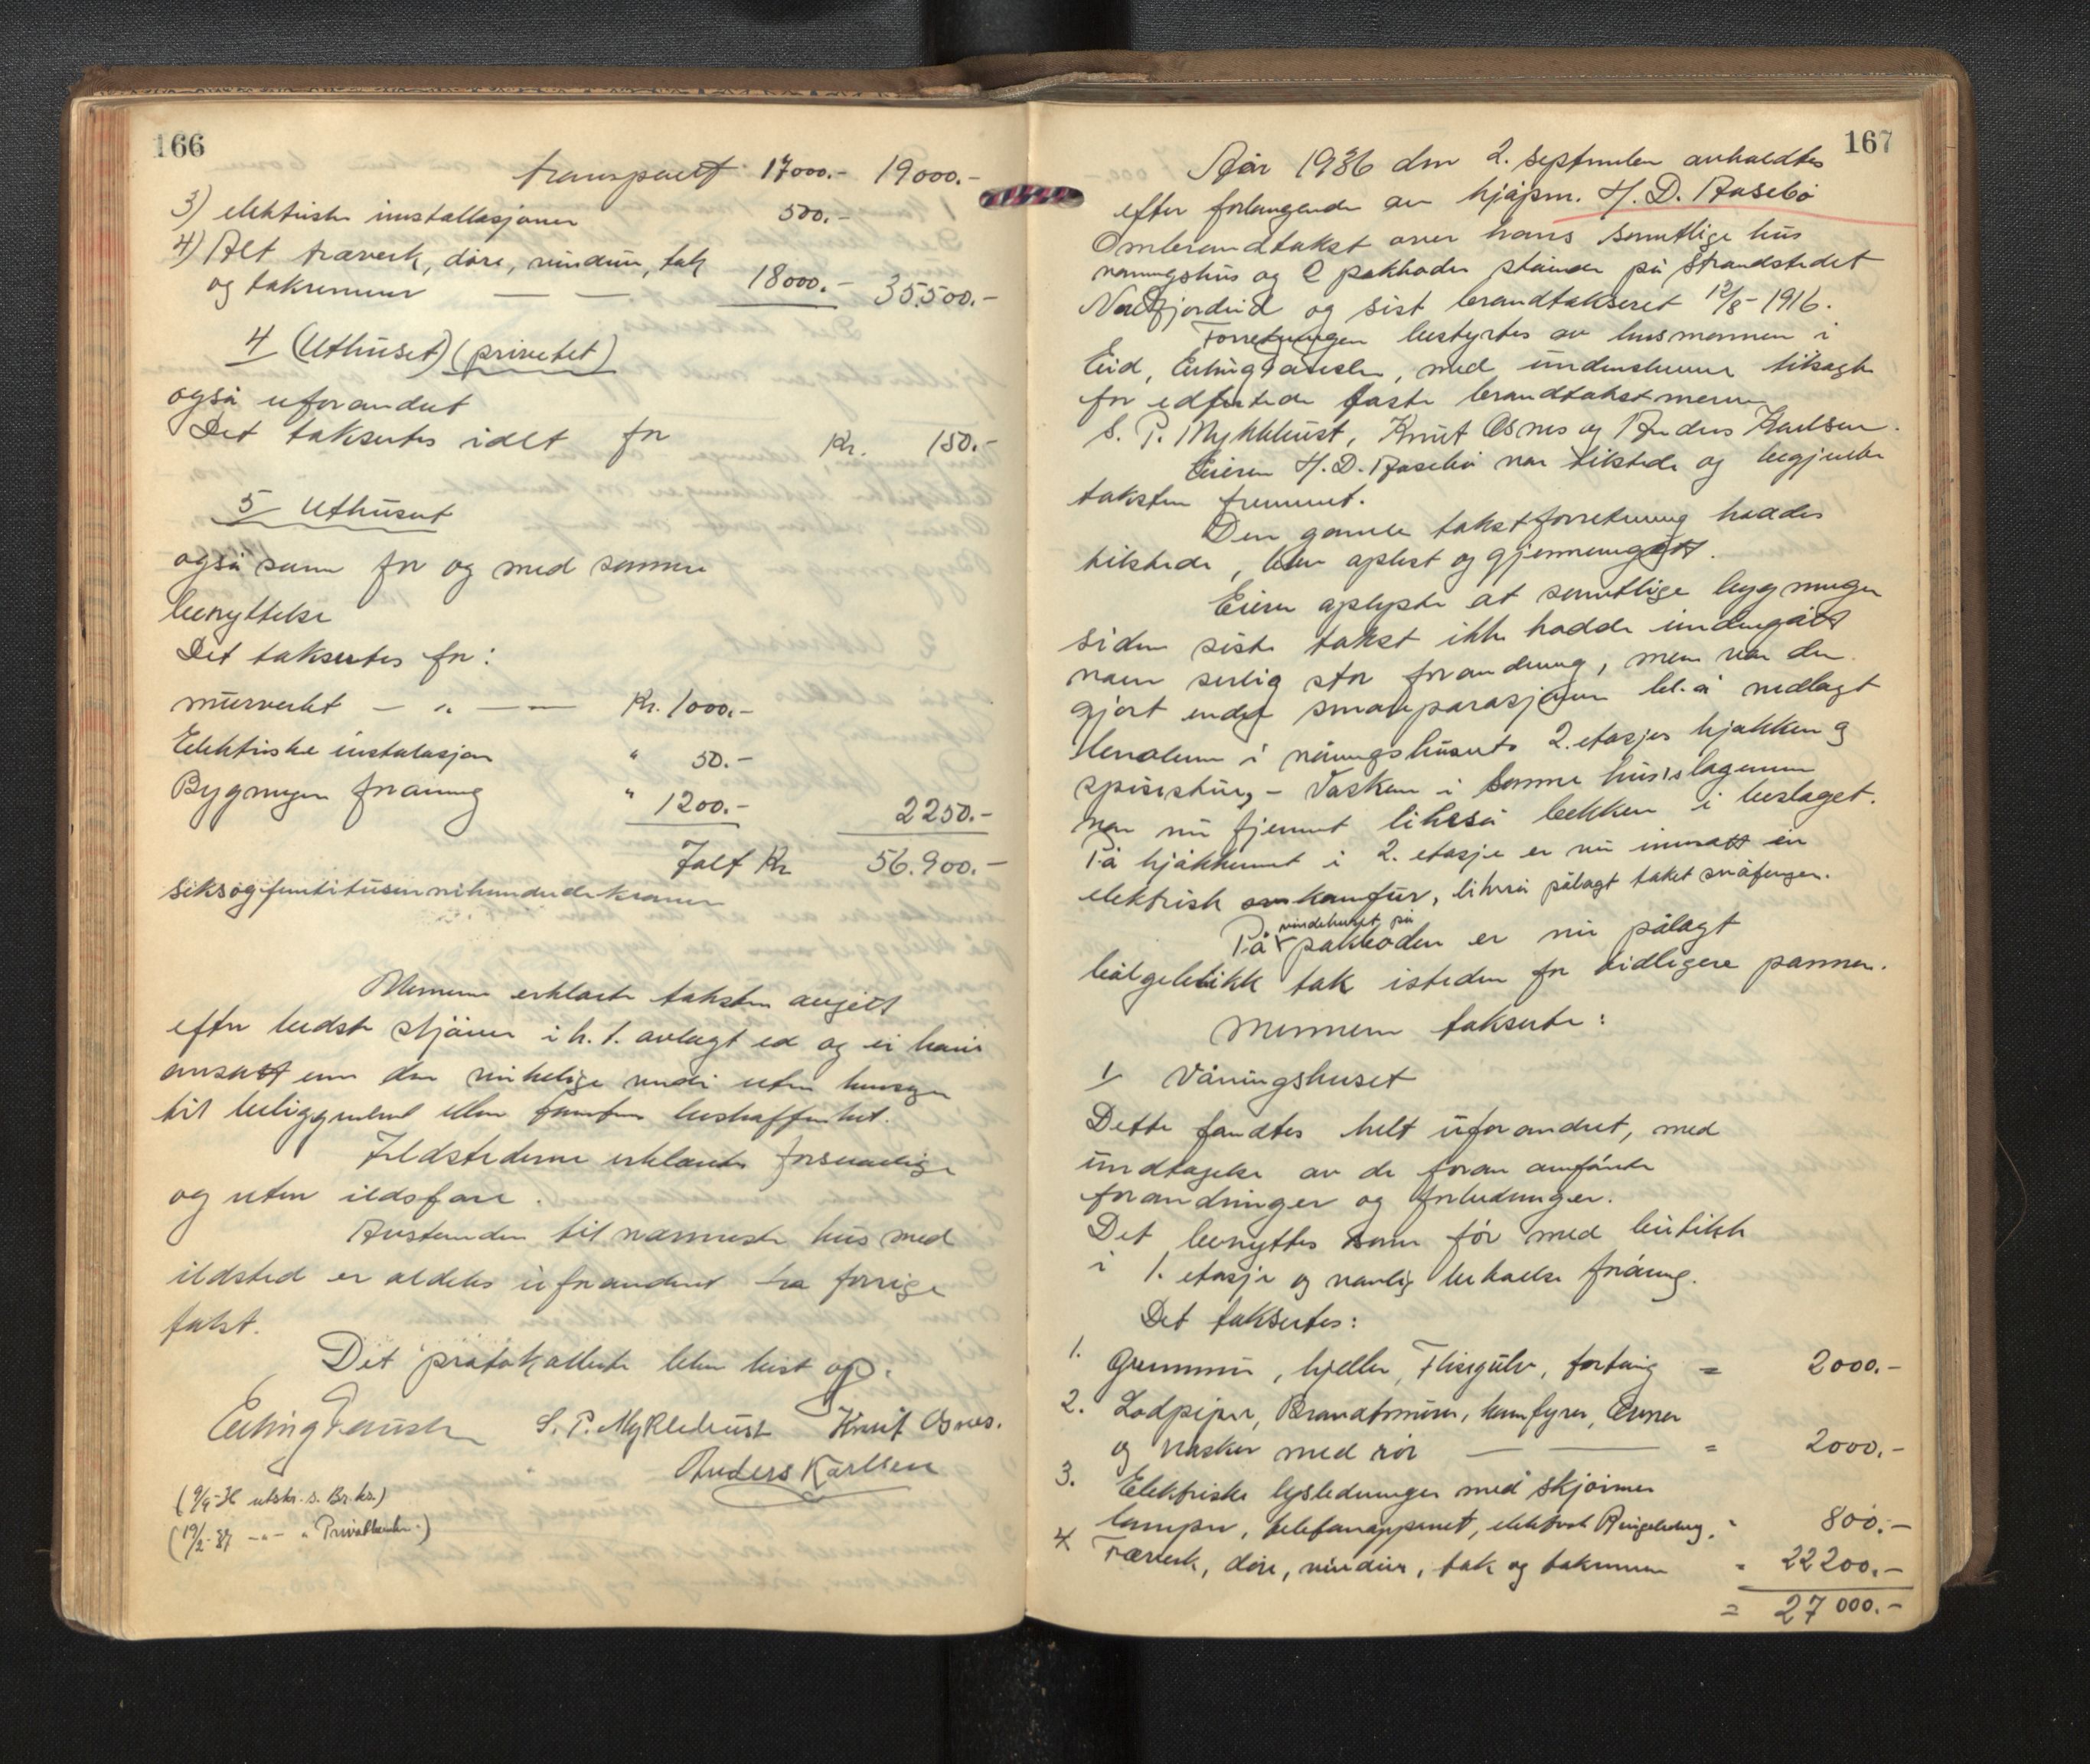 166
transport 17000.- 19000.-
3) elektriske innstallasjoner 500.-
4) Alt træverk, døre, vinduer, tak
og takrenner — — 18000.- 35.500.-
4/ (Uthuset) (privetet)
også uforandret
Det taksertes idelt for Kr. 150.-
5/ Uthuset
også som før og med samme
benyttelse
Det taksertes for:
murverket — " — — Kr. 1000.-
Elektriske instalasjon " 50.-
Bygningen forøvrig " 1200.- 2250.-
Ialt Kr 56.900.-
seksogfemtitusennihundrede kroner
Mennene erklærte taksten avgitt
efter bedste skjønn i h. t. avlagt ed og ei høiere
ansatt enn den virkelige verdi uten hensyn
til beliggenhet eller tomtens beskaffenhet.
Ildstederne erklærtes forsvarlige
og uten ildsfare.
Avstanden til nærmeste hus med
ildsted er aldeles uforandret fra forrige
takst.
Det protokollerte blev lest op.
Erling Fauske S. P. Myklebust Knut Osnes.
Anders Karlsen
(9/9-36 utskr. s. Br.ks.)
(19/2-37 -"- " Privatbanken.)
167
År 1936 den 2. september avholdtes
efter forlangende av kjøpm. H. D. Aasebø
Ombrandtakst over hans samtlige hus
våningshus og 2 pakkboder stående på strandstedet
Nordfjordeid og sist brandtaksert 12/8-1916.
Forretningen bestyrtes av lensmannen i
Eid, Erling Fauske, med undertegnede tilsagte
før edfestede faste brandtakstmenn
S. P. Myklebust, Knut Osnes og Anders Karlsen.
Eieren H. D. Aasebø var tilstede og begjærte
taksten fremmet.
Den gamle takstforretning haddes
tilstede, blev oplest og gjennemgått.
Eieren oplyste at samtlige bygninger
siden siste takst ikke hadde undergått
noen serlig stor forandring, men var der
gjort endel småreparasjoner bl. a. nedlagt
lenoleum i våningshusets 2. etasjes kjøkken og
spisestue, - Vasken i samme husis lagerrum
var nu fjernet likeså bekken i beslaget.
På kjøkkenet i 2. etasje er nu innsatt en
elektrisk komfur, likeså pålagt taket snøfanger.
På vindehuset på pakkboden er nu pålagt
bølgeblikk tak isteden for tidligere panner.
Mennene takserte:
1/ Våningshuset
Dette fandtes helt uforandret, med
undtagelse av de foran anførte
forandringer og forbedringer.
Det benyttes som før med butikk
i 1. etasje og vanlig bekvæm forøvrig.
Det taksertes:
1. Grunnmur, kjeller, Flisegulv, fortaug = 2000.-
2. Lodpiper, Brandtmurer, komfyrer, Ovner
og vasker med rør — — = 2000.-
3. Elektriske lysledninger med skjermer
lamper, telefonapparet, elektrisk Ringeledning, " 800.-
4 Træverk, døre, vinduer, tak og takrenner " 22200.-
= 27000.-